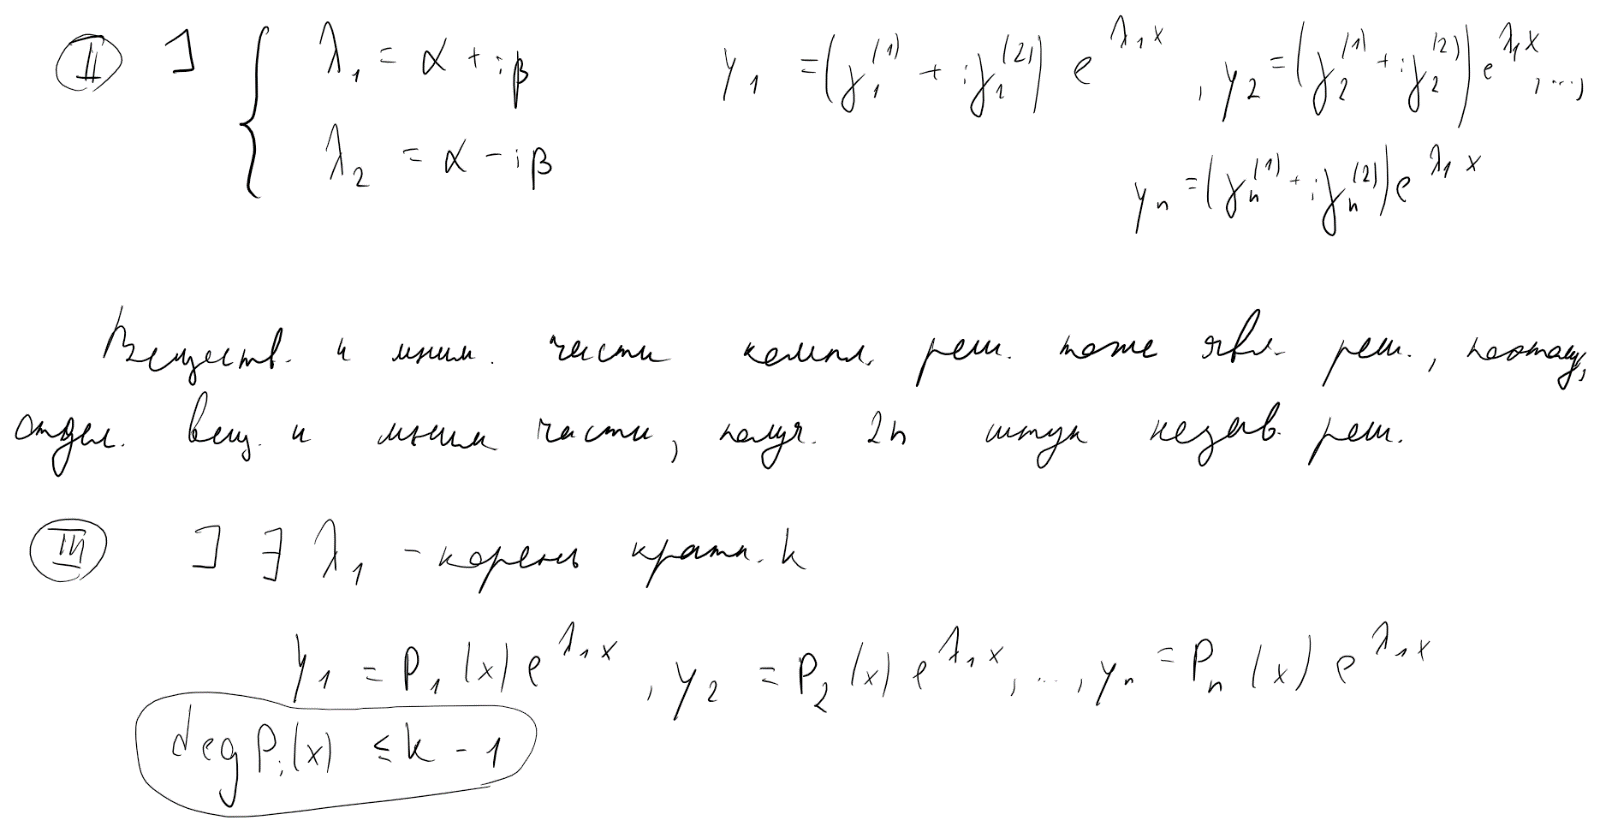 II ] { λ₁ = α + iβ y₁ = (γ₁⁽¹⁾ + iγ₁⁽²⁾) e^{λ₁x}, y₂ = (γ₂⁽¹⁾ + iγ₂⁽²⁾) e^{λ₁x}, ...,
λ₂ = α − iβ yₙ = (γₙ⁽¹⁾ + iγₙ⁽²⁾) e^{λ₁x}
Веществ. и мним. части компл. реш. тоже явл. реш., поэтому,
отдел. вещ. и мним части, получ. 2n штук незав. реш.
III ] ∃ λ₁ – корень кратн. k
y₁ = P₁(x) e^{λ₁x}, y₂ = P₂(x) e^{λ₁x}, ..., yₙ = Pₙ(x) e^{λ₁x}
deg Pᵢ(x) ≤ k − 1